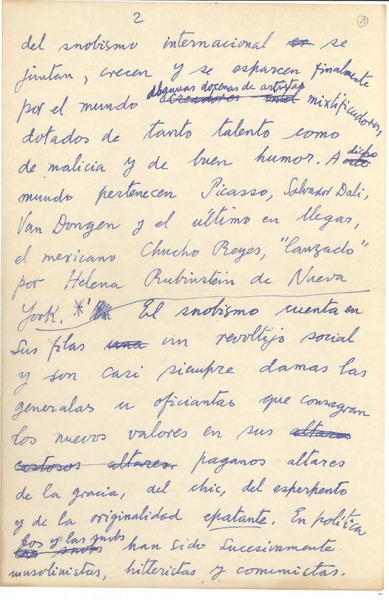 2
del snobismo internacional se
juntan, crecen y se esparcen finalmente
algunas docenas de artistas
por el mundo creadores mixtificadores,
dotados de tanto talento como
de malicia y de buen humor. A dicho
mundo pertenecen Picasso, Salvador Dali,
Van Dongen y el último en llegar,
el mexicano Chucho Reyes, "lanzado"
por Helena Rubinstein de Nueva
York. * El snobismo cuenta en
sus filas una un revoltijo social
y son casi siempre damas las
generalas u oficiantas que consagran
los nuevos valores en sus altares
costosos altares paganos altares
de la gracia, del chic, del esperpento
y de la originalidad epatante. En política
los y las snobs
los snobs han sido sucesivamente
musolinistas, hitleristas y comunistas.